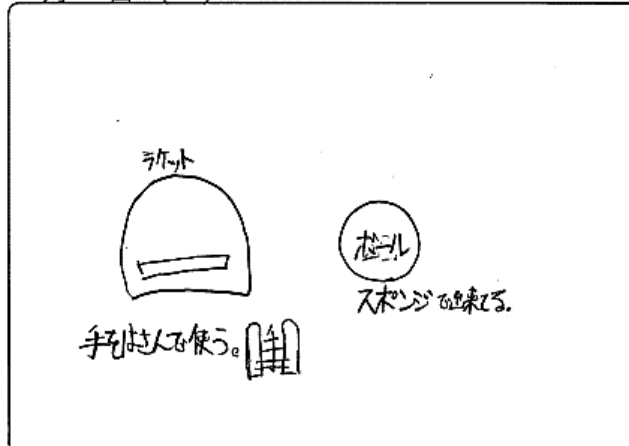 ラケット
ボール
スポンジで出来てる。
手をはさんで使う。
手